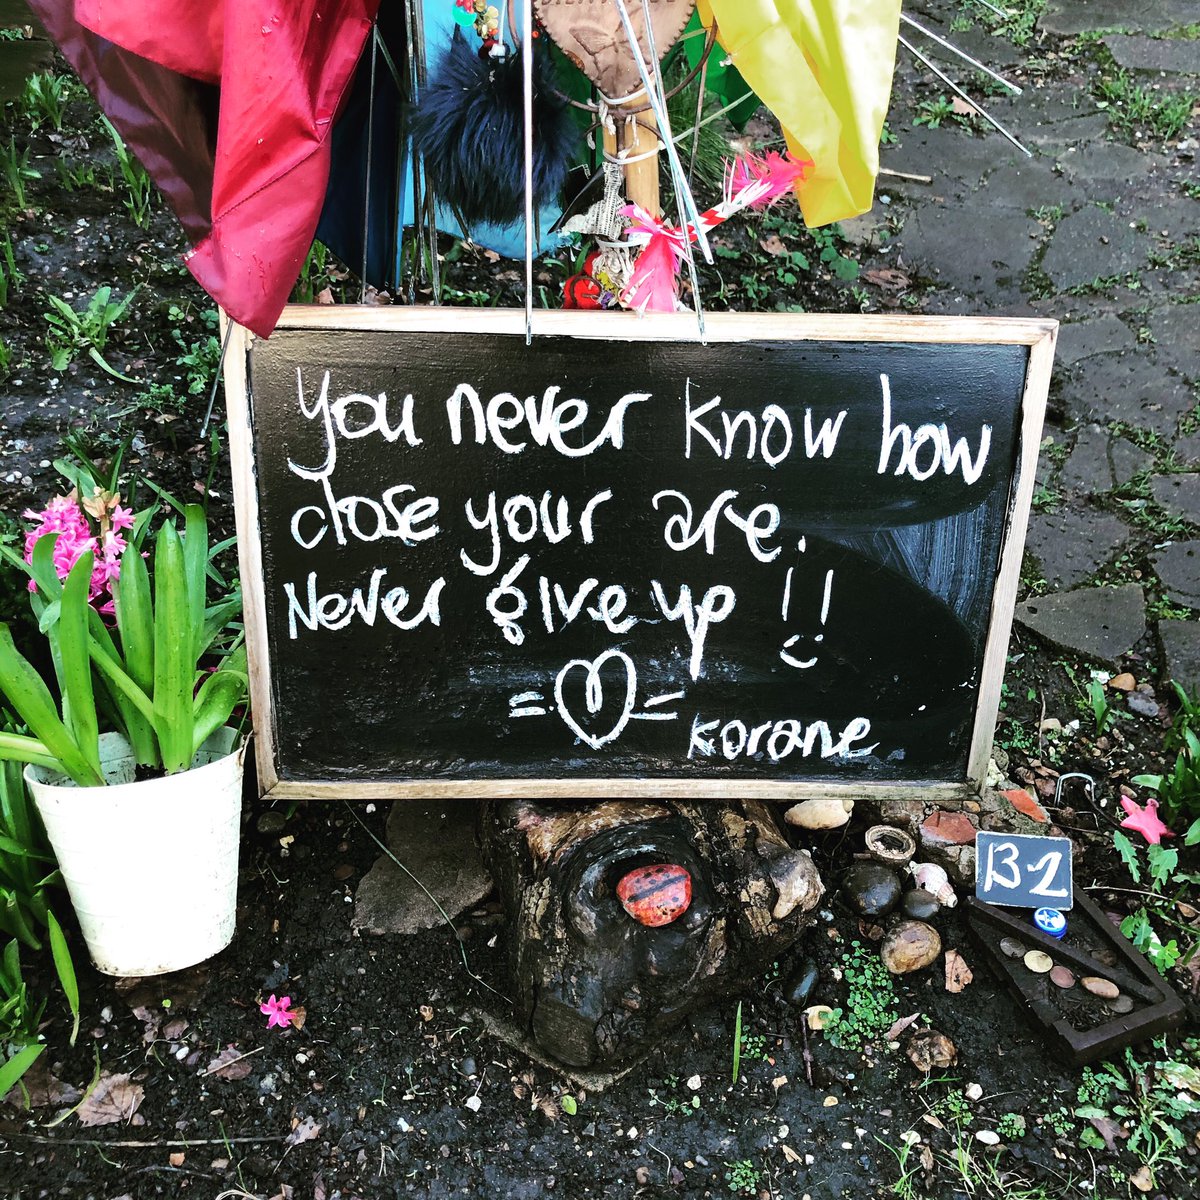 You never know how
close your are.
Never give up !!
Korane
B1